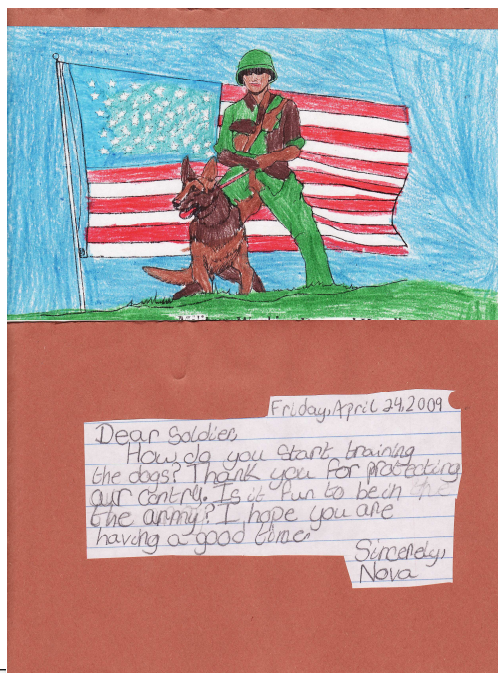 Friday, April 24, 2009
Dear Soldier,
How do you start training
the dogs? Thank you for protecting
our contry. Is it fun to be in the
the army? I hope you are
having a good time.
Sincerely,
Nova